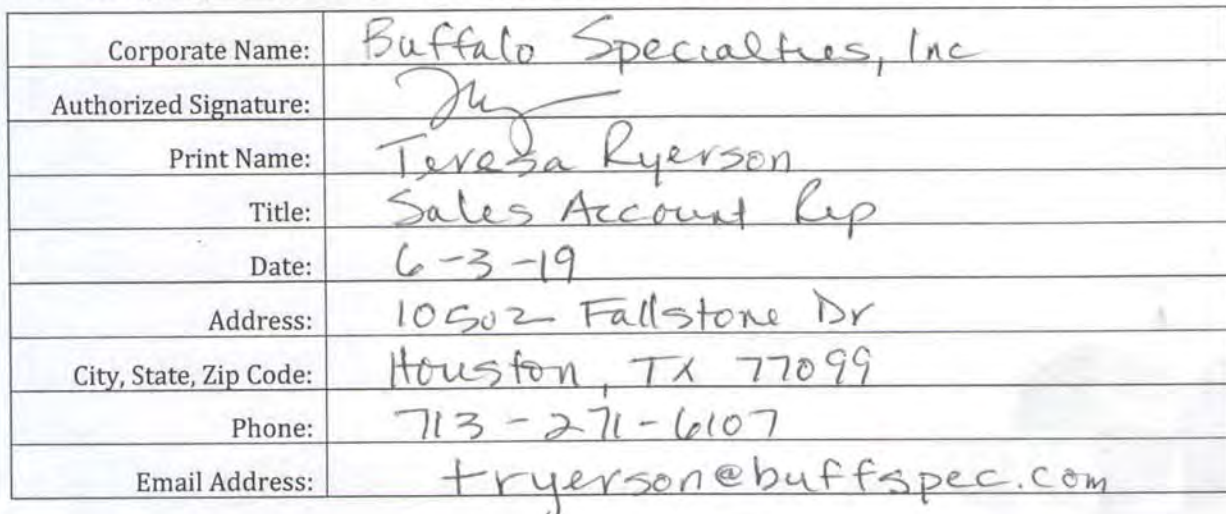 Corporate Name: Buffalo Specialties, Inc
Authorized Signature:
Print Name: Teresa Ryerson
Title: Sales Account Rep
Date: 6-3-19
Address: 10502 Fallstone Dr
City, State, Zip Code: Houston, TX 77099
Phone: 713-271-6107
Email Address: tryerson@buffspec.com